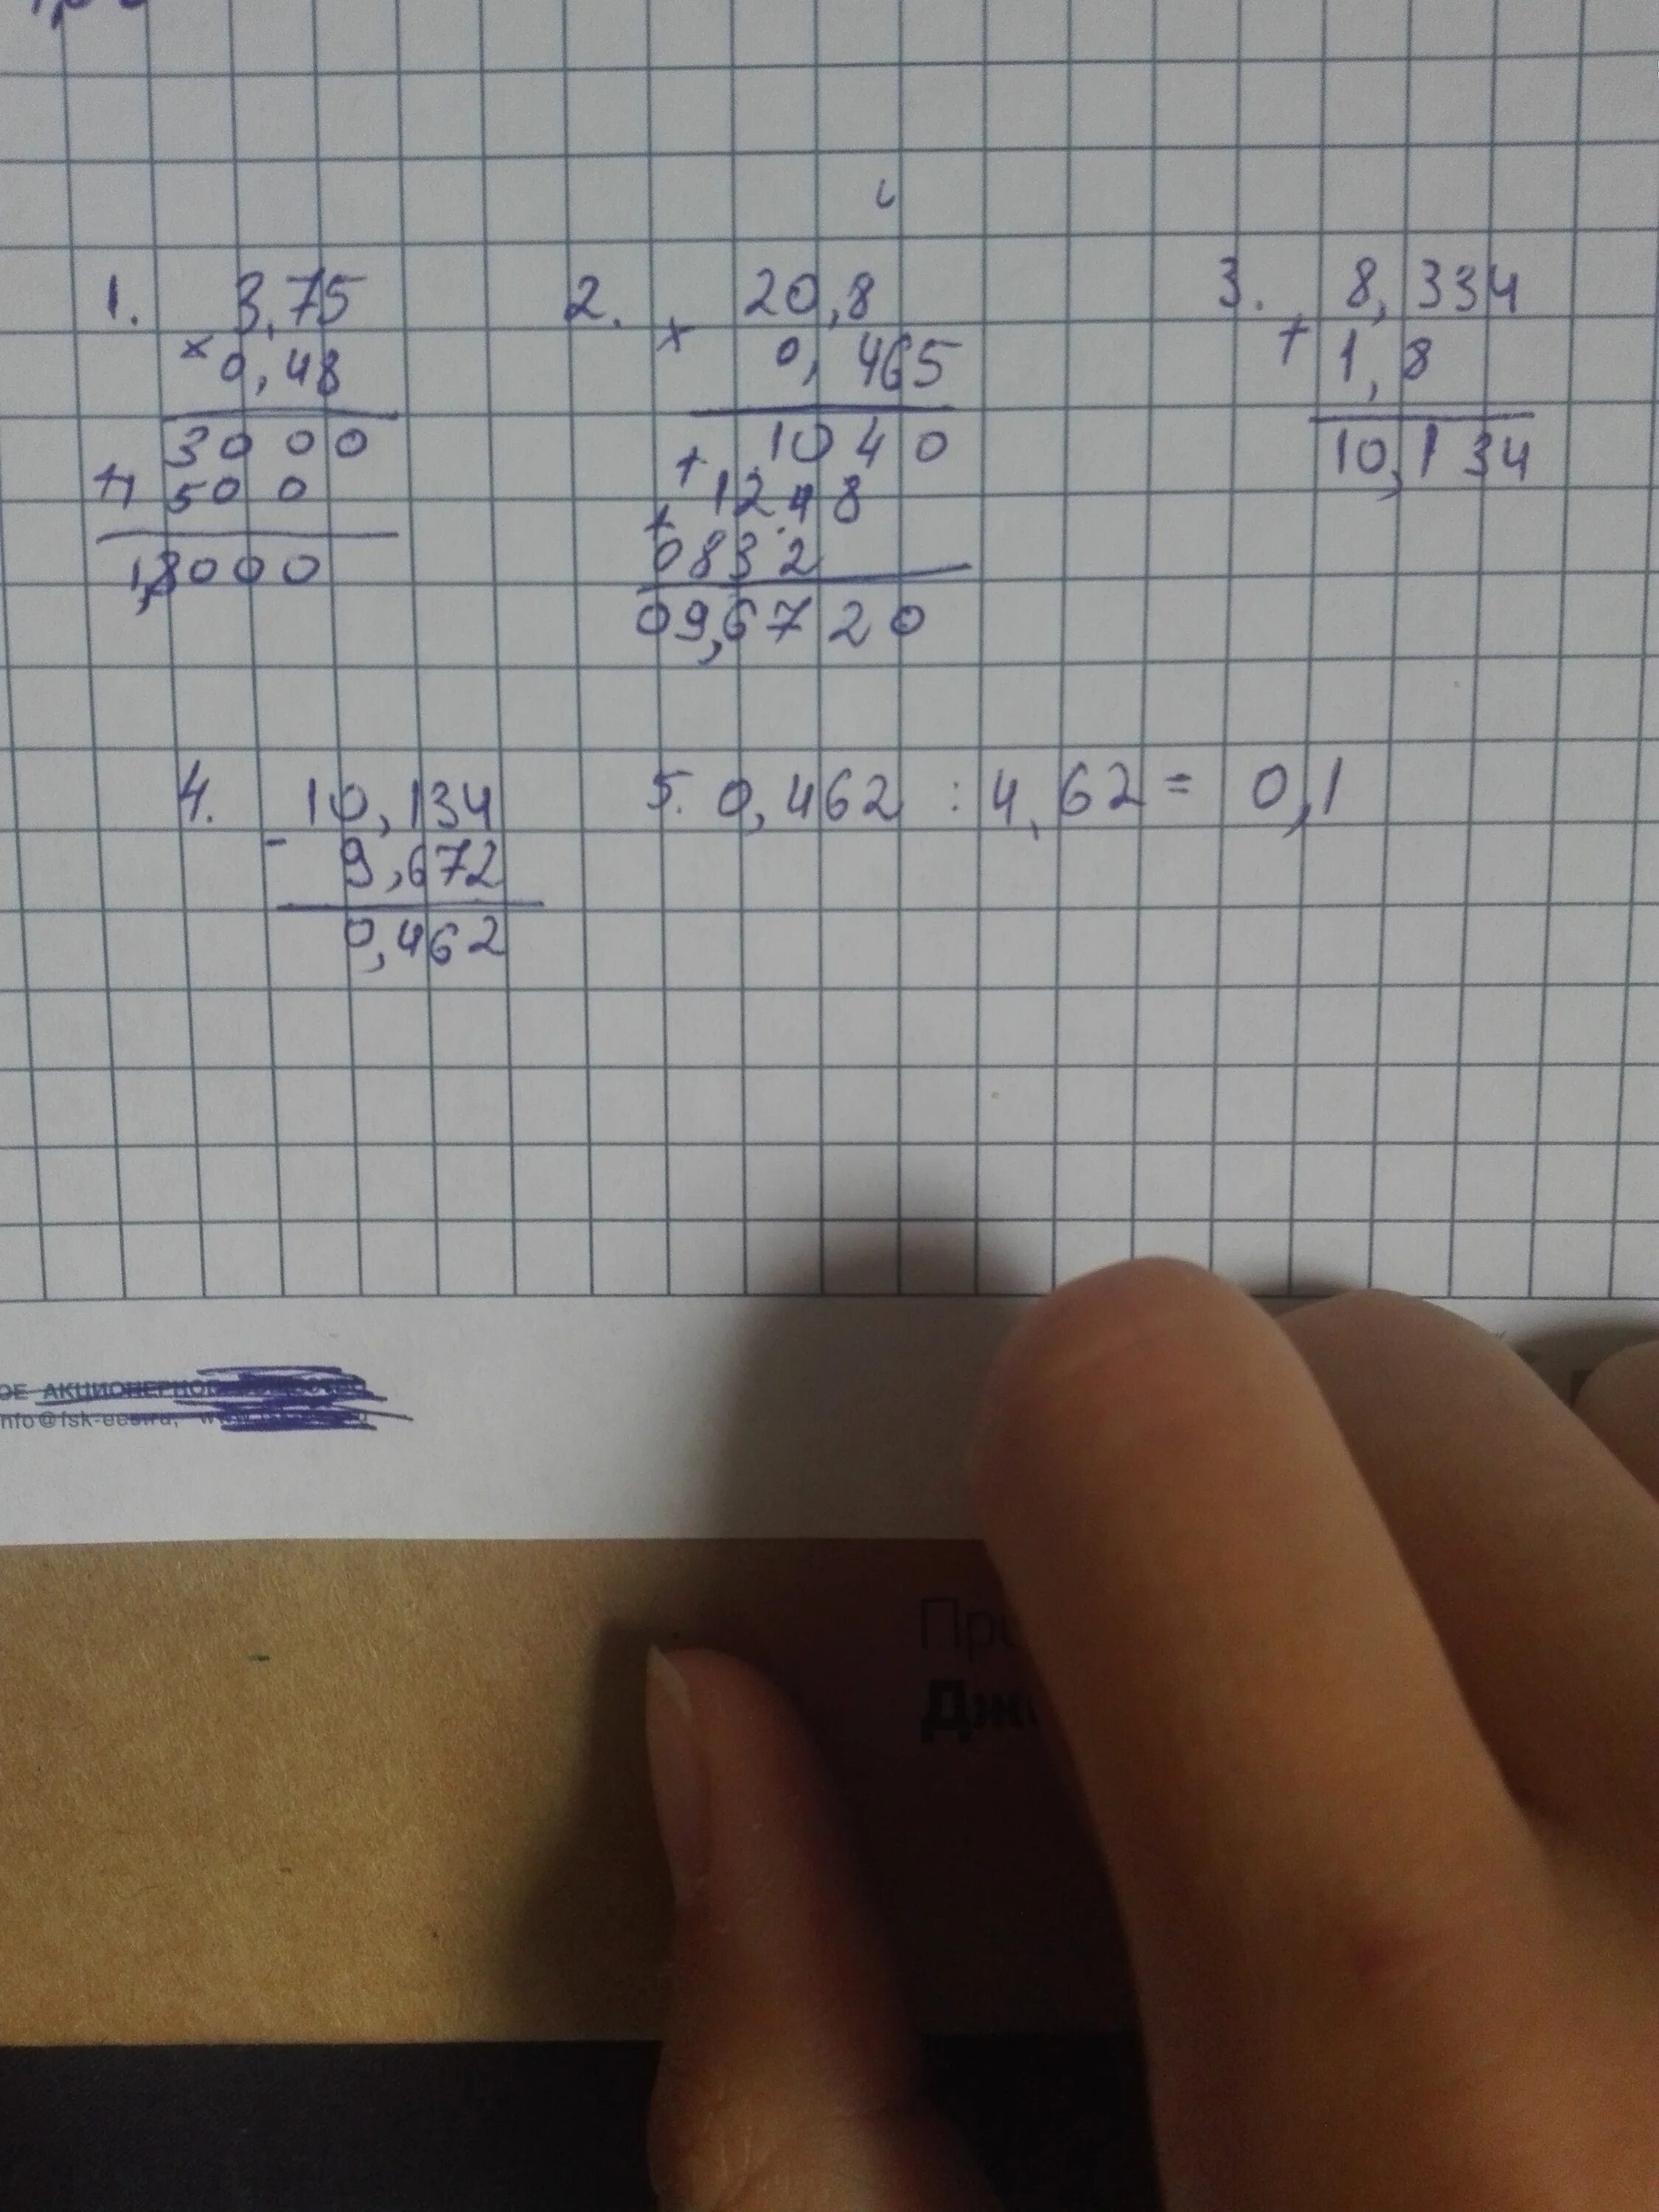 1. 3,75
× 0,48
3000
+1500
1,8000
2. 20,8
× 0,465
1040
+ 1248
+ 0832
09,6720
3. 8,334
+ 1,8
10,134
4. 10,134
- 9,672
0,462
5. 0,462 : 4,62 = 0,1
ОЕ АКЦИОНЕРНО
nfo@fsk-ees.ru,